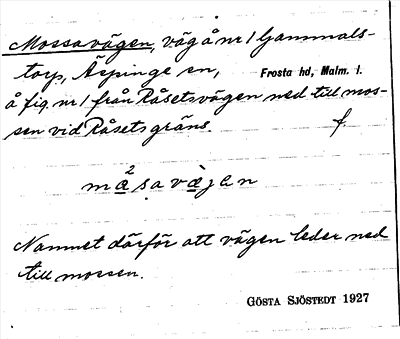 Mossavägen, väg å nr 1 Gammals-
torp, Äspinge sn, Frosta hd, Malm. l.
å fig. nr 1 från Råsetsvägen ned till mos-
sen vid Råsets gräns. f.
Namnet därför att vägen leder ned
till mossen.
GÖSTA SJÖSTEDT 1927